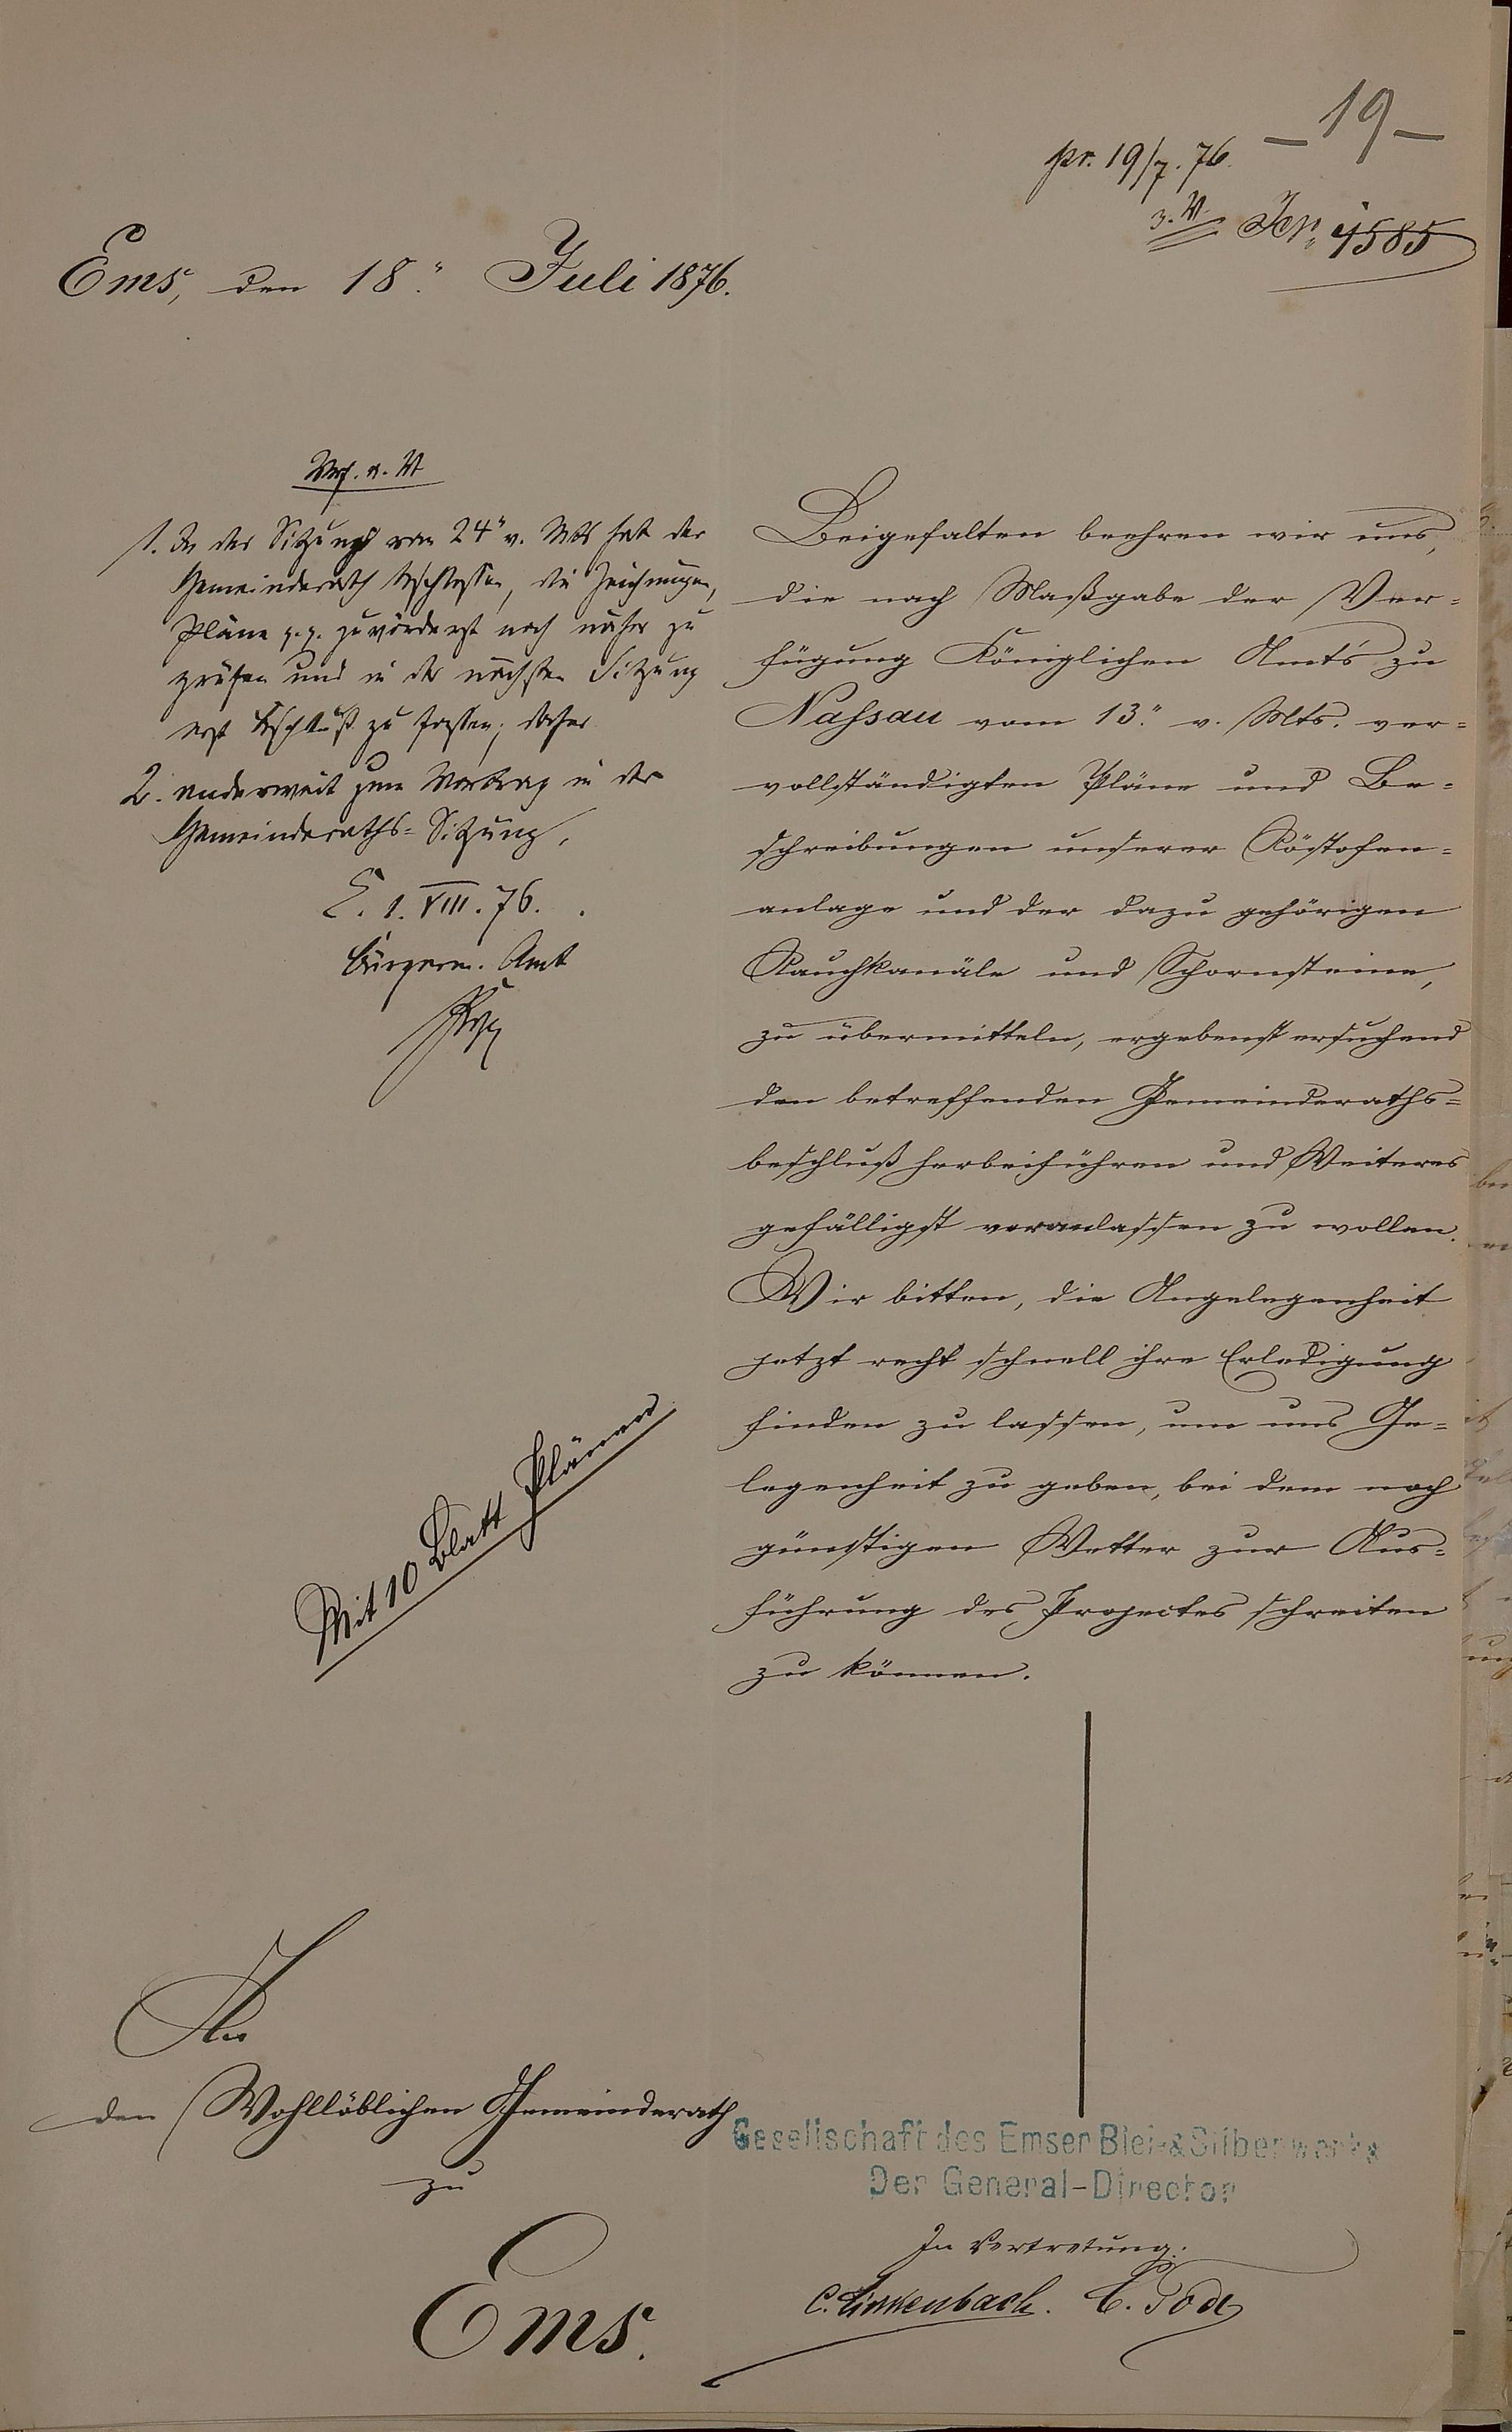 – 19 –
pr. 19/7. 76.
z. V. Nr. 4585
Ems, den 18." Juli 1876.
1. In der Sitzung vom 24" v. Mts hat der
Gemeinderath beschlossen, die Zeichnungen,
Pläne p.p. zuvörderst noch näher zu
prüfen und in der nächsten Sitzung
erst Beschluß zu fassen; daher
2. anderweit zum Vortrag in der
Gemeinderaths-Sitzung.
E. 1. VIII. 76.
Bürgerm. Amt
Beigefalten beehren wir uns,
die nach Maßgabe der Ver=
fügung Königlichen Amts zu
Nassau vom 13." v. Mts. ver=
vollständigten Pläne und Be=
schreibungen unserer Röstofen=
anlage und der dazu gehörigen
Rauchkanäle und Schornsteine,
zu übermitteln, ergebenst ersuchend
den betreffenden Gemeinderaths=
beschluß herbeiführen und Weiteres
gefälligst veranlassen zu wollen.
Wir bitten, die Angelegenheit
jetzt recht schnell ihre Erledigung
finden zu lassen, um uns Ge=
legenheit zu geben, bei dem noch
günstigen Wetter zur Aus=
führung des Projectes schreiten
zu können.
Mit 10 Blatt Plänen
An
den Wohllöblichen Gemeinderath
zu
Ems.
Gesellschaft des Emser Blei-& Silberwerks
Der General-Director
In Vertretung:
C. Linkenbach. C. Tode